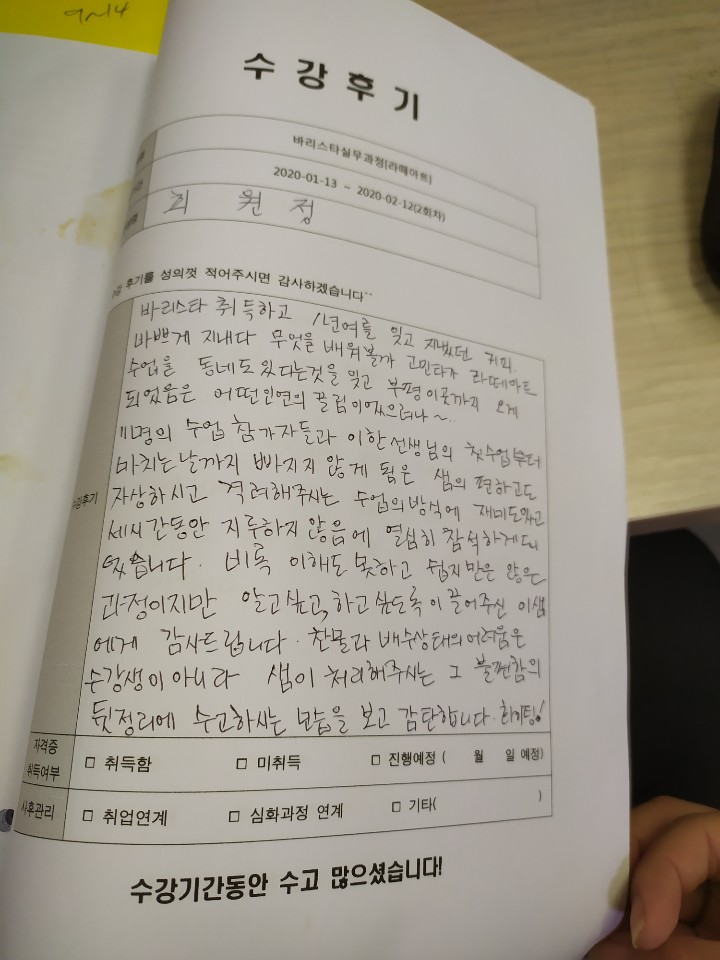 9~14
수 강 후 기
바리스타실무과정[라떼아트]
2020-01-13 ~ 2020-02-12(2회차)
최 원 정
후기를 성의껏 적어주시면 감사하겠습니다^^
수강후기
바리스타 취득하고 1년여를 잊고 지냈던 커피.
바쁘게 지내다 무엇을 배워볼까 고민타가 라떼아트
수업을 동네도 있다는것을 잊고 부평 이곳까지 오게
되었음은 어떤인연의 끌림이었으려나~..
11명의 수업 참가자들과 이한선생님의 첫수업부터
마치는날까지 빠지지 않게 됨은 샘의 편하고도
자상하시고 격려해주시는 수업의방식에 재미도있고
세시간동안 지루하지 않음에 열심히 참석하게되
었습니다. 비록 이해도 못하고 쉽지만은 않은
과정이지만 알고싶고, 하고싶도록 이끌어주신 이샘
에게 감사드립니다. 찬물과 배수상태의어려움은
수강생이 아니라 샘이 처리해주시는 그 불편함의
뒷정리에 수고하시는 모습을 보고 감탄합니다. 화이팅!
자격증
취득여부
□ 취득함 □ 미취득 □ 진행예정 ( 월 일 예정)
사후관리
□ 취업연계 □ 심화과정 연계 □ 기타( )
수강기간동안 수고 많으셨습니다!